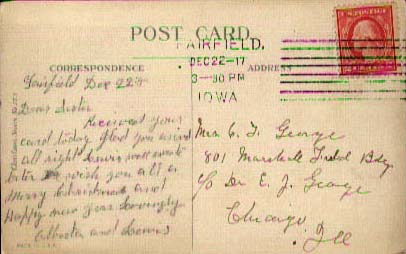 POST CARD.
CORRESPONDENCE
ADDRESS
FAIRFIELD.
DEC 22-17
3-30 PM
IOWA
Fairfield Dec 22nd
Dear Sister
Received your
card today glad you arrived
all right Lewis will write
later Do wish you all a
Merry Christmas and
Happy New Year Lovingly
and Lewis
Mrs C. F. George
801 Marshall Field Bdg
c/o Dr E. J. George
Chicago
Ill